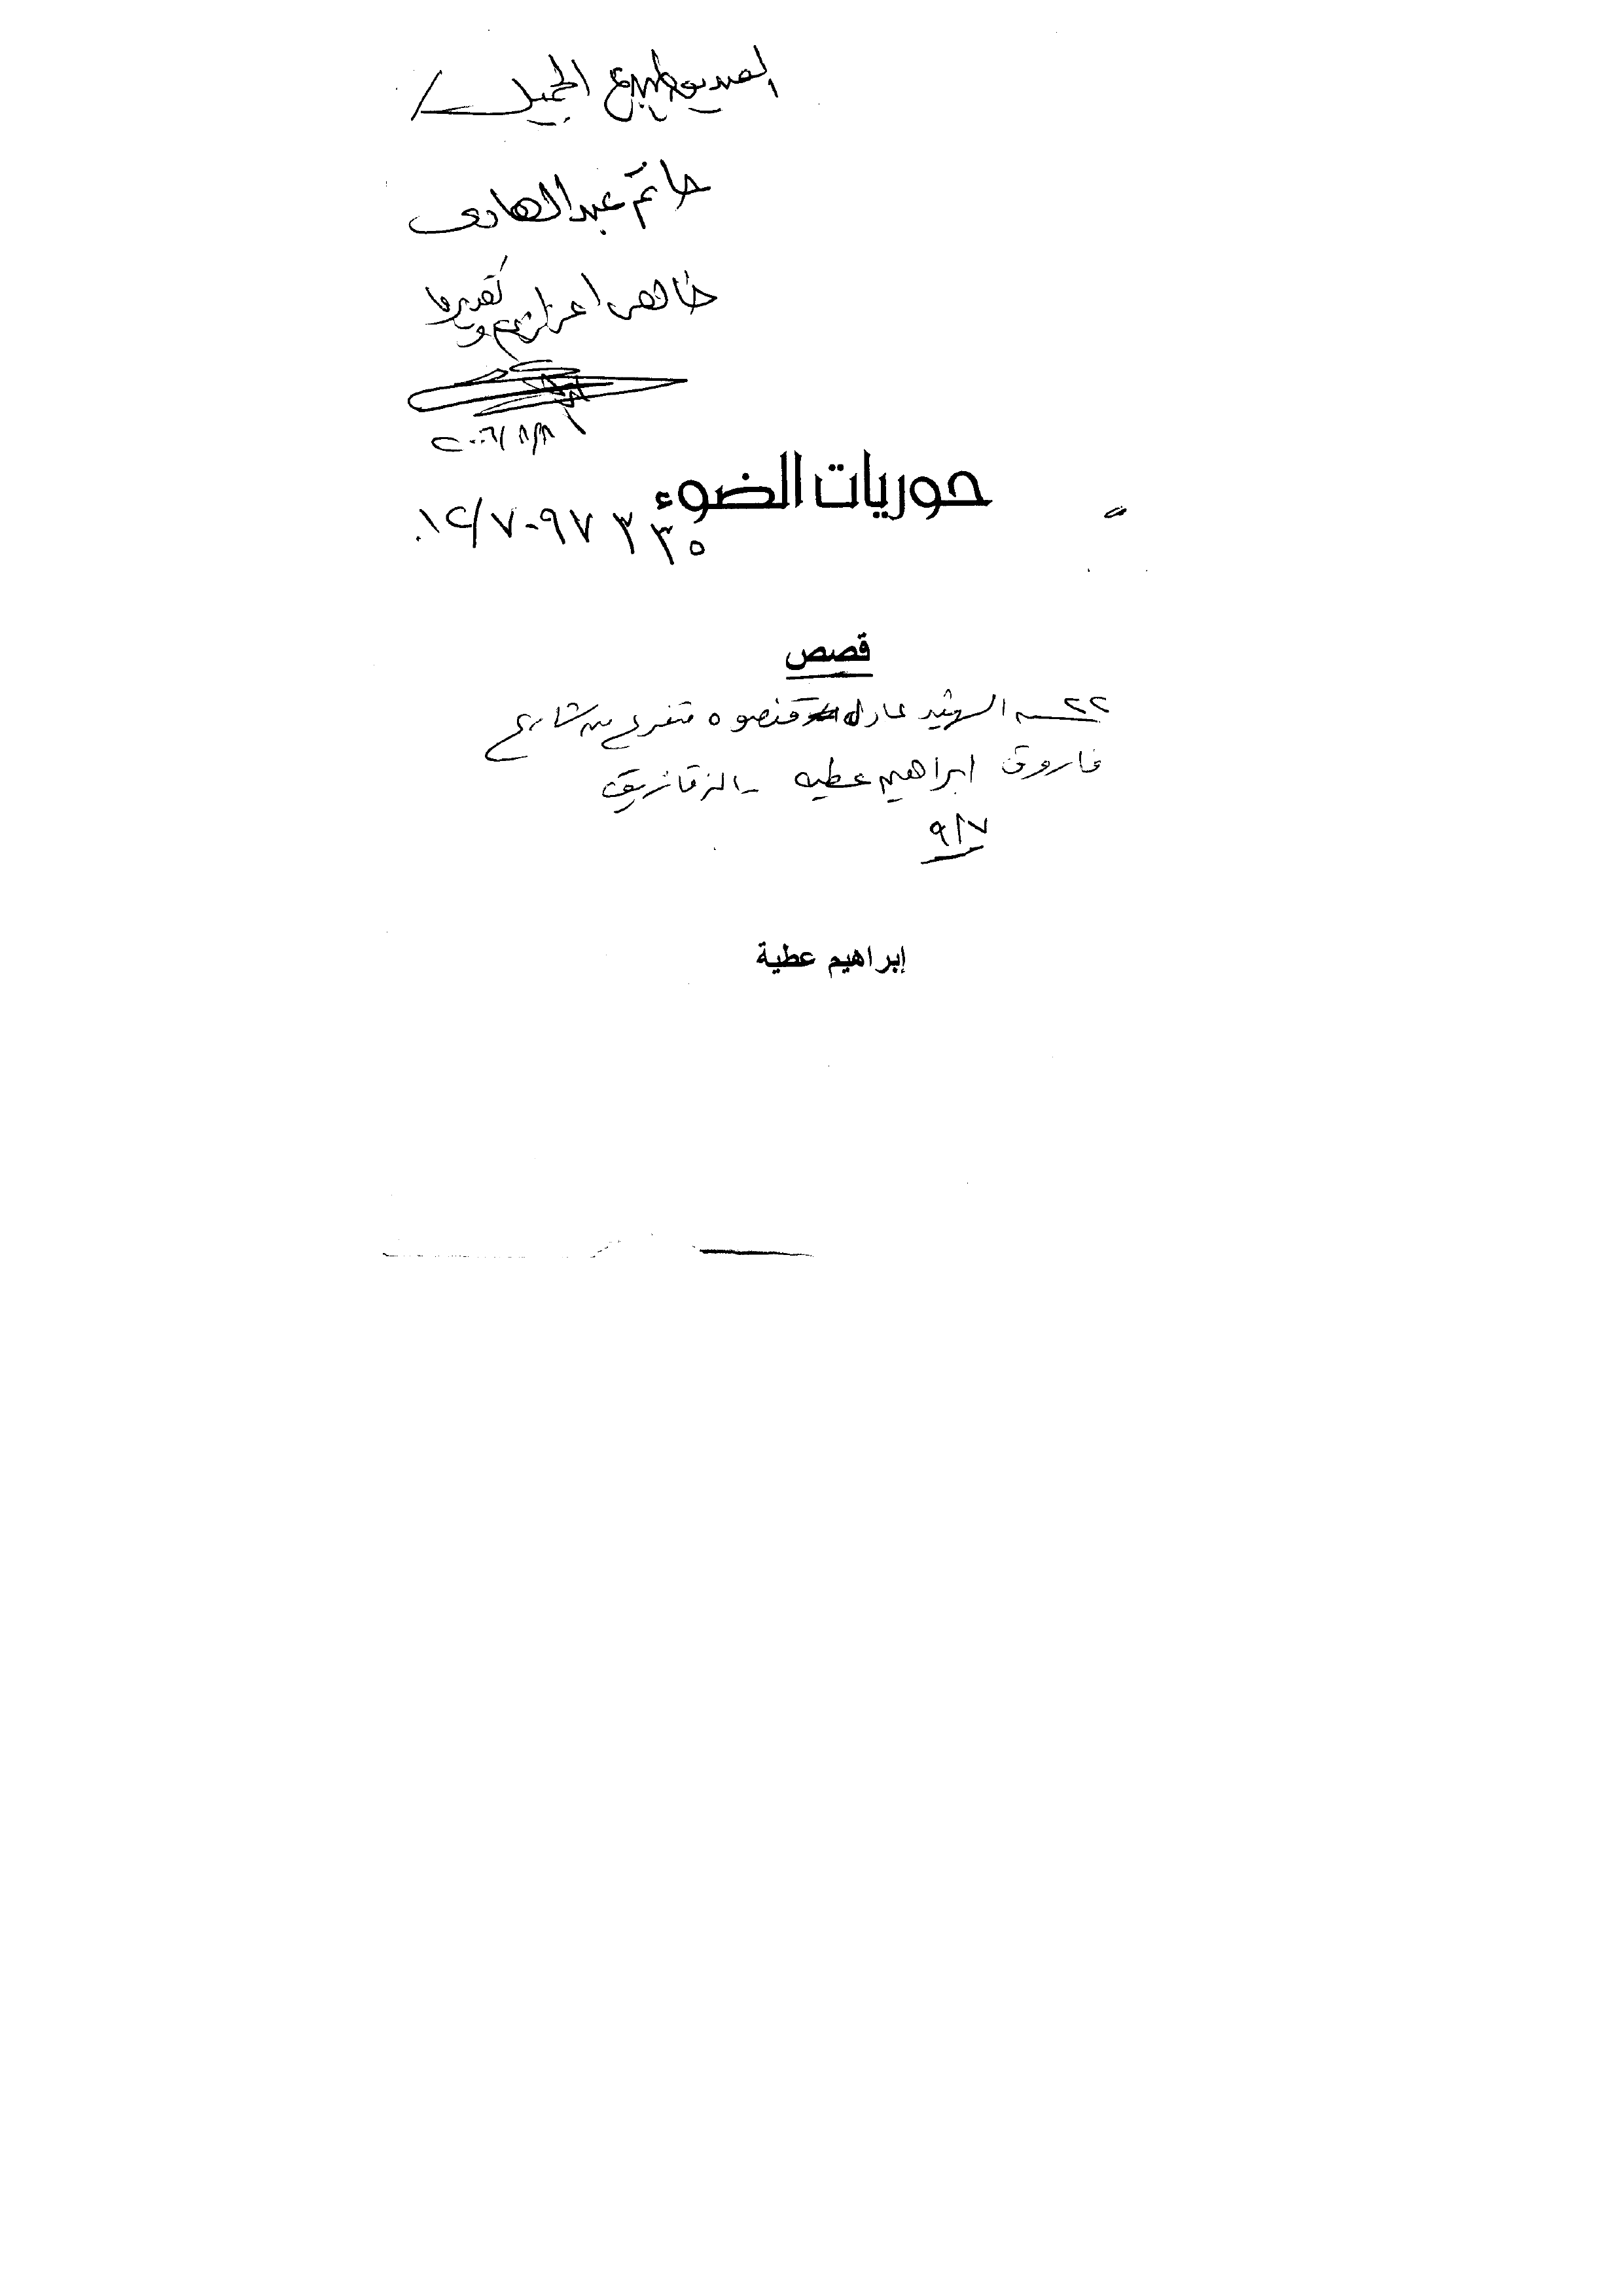 الصديق المبدع الجميل/
حاتم عبد الهادى
خالص اعزازى وتقديرى
٢٠٠٦/٨/٨
حوريات الضوء
٠١٢/٧٠٩٧٣٣٥
قصص
٢٢ ش الشهيد عادل قنصوه متفرع من شارع
فاروق ابراهيم عطيه - الزقازيق
٩/٧
إبراهيم عطية